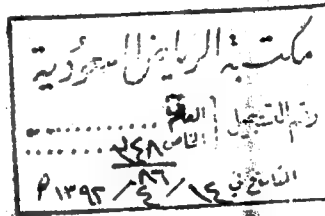 مكتبة الرياض السعودية
رقم التسجيل
العام
الخاص ٢٤٨
٨٦
التاريخ في ١٤ / ٤ / ١٣٩٢ م